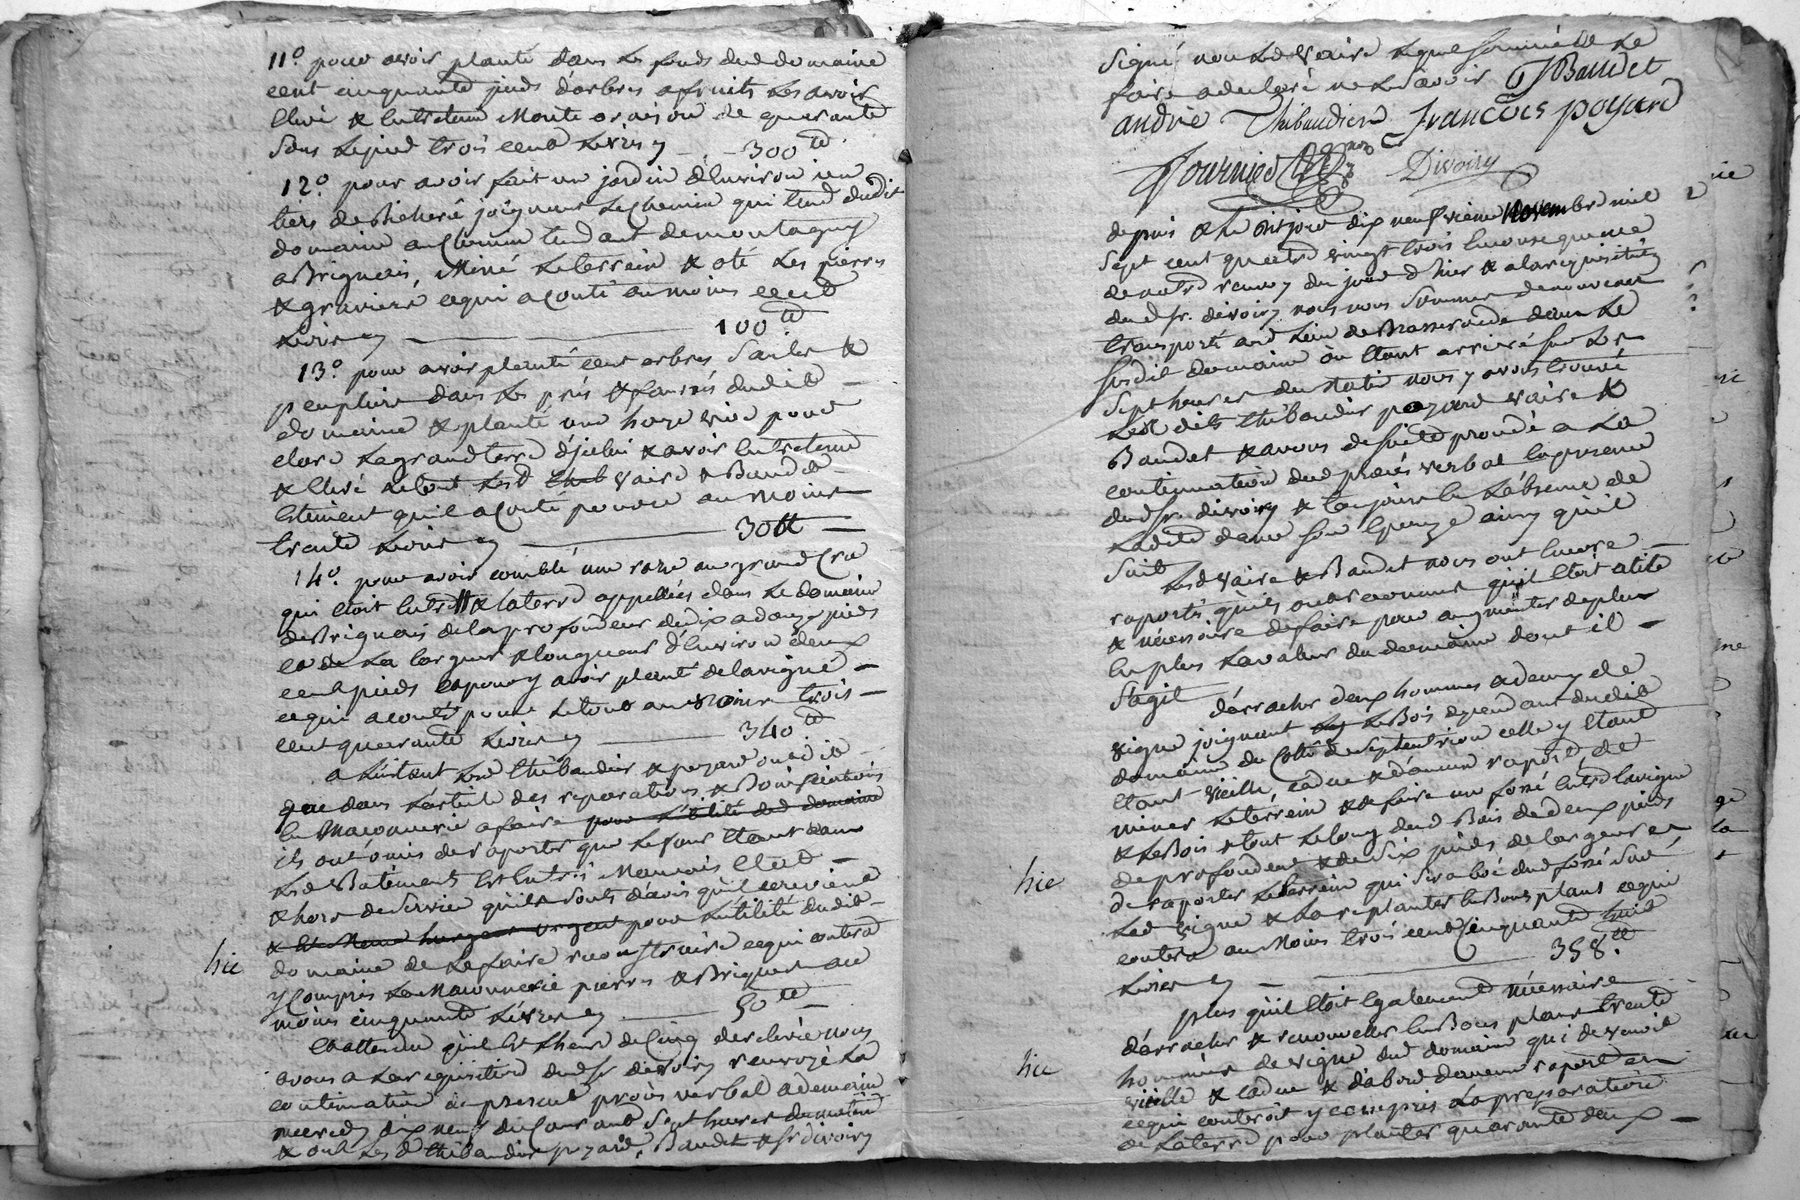 11° pour avoir planté dans les fonds dud domaine
cent cinquante pieds d'arbres a fruits les avoir
Elevé & Entretenu Monte a raison de quarante
Sous le pied trois cent Livres cy 300ᵗᵗ
12° pour avoir fait un jardin d'Environ un
tiers de Bicherée joignant le Chemin qui tend dudit
domaine au Chemin tendant de montagny
a Brignais, Miné le terrein & oté les pierres
& graviers ce qui a Couté au moins cent
Livres cy 100ᵗᵗ
13° pour avoir planté cent arbres Saules &
peupliers dans les prés & fossés dudit
domaine & planté une haye vive pour
clore la grand terre d'jcelui & avoir Entretenu
& Elevé le tout lesd Vaire & Baudet
Estiment qu'il a Couté pour ce au Moins
trente Livres cy 30ᵗᵗ
14° pour avoir comblé une raze au grand Cra
qui Etoit Entre & la terre appellées dans le domaine
de Brignais de la profondeur de dix a douze pieds
et de la largeur & longueur d'Environ deux
cent pieds et pour y avoir planté de la vigne
ce qui a couté pour le tout au moins trois
cent quarante Livres cy 340ᵗᵗ
a L'instant lesd Thibaudier & poyard ont dit
que dans l'article des reparations & Boisseries
En Maçonnerie a faire pour L'utilité dud domaine
ils ont omis de raporter que le four Etant dans
lesd Batiments Est En très Mauvais Etat
& hors de Service qu'ils sont d'avis qu'il convient
& Est Meme hurgent urgent pour L'utilité dudit
hic
domaine de le faire reconstruire ce qui coutera
y Compris la Maçonnerie pierres & Briques au
moins cinquante Livres cy 50ᵗᵗ
Et attendu qu'il Est L'heure de Cinq de relevée nous
avons a la requisition dud Sr divoiry renvoyé la
continuation du present procès verbal a demain
mercredy dix neuf du Courant Sept heures du matin
& ont lesd thibaudier poyard, Baudet & Sr divoiry
Signé non led Vaire lequel sommé de le
faire a declaré ne le Savoir J Baudet
andré Thibaudier François poyard
Fournier Divoiry
depuis & ce dit jour dix neufvieme Novembre mil
Sept cent quatre vingt trois En consequence
de notre renvoy du jour d'hier & a la requisition
dud Sr. divoiry nous nous sommes de nouveau
transporté aud Lieu de dans le
susdit domaine ou Etant arrivé sur les
Sept heures du Matin nous y avons trouvé
lesdits thibaudier poyard vaire &
Baudet & avons de suite procédé a la
continuation dud procés verbal En presence
dud Sr. divoiry & toujours En L'absence de
ainsy qu'il
Suit
Lesd Vaire & Baudet nous ont Encore
raporté qu'ils ont reconnu qu'il Etoit utile
& nécessaire de faire pour augmenter de plus
En plus la valeur du domaine dont il
S'agit
d'arracher deux hommes a demy de
vigne joignant le Bois dependant dudit
domaine du Cotté de Septentrion celle y Etant
Etant vieille, caduc & d'aucun raport de
miner le terrein & de faire un fossé Entre la vigne
& le Bois & tout le long dud Bois de deux pieds
hic
de profondeur & de Six pieds de largeur et
de raporter le terrein qui sera oté dud fossé Sur
lad vigne & la replanter En Bons plans ce qui
coutera au Moins trois cent Cinquante huit
Livres cy 358ᵗᵗ
plus qu'il Etoit Egalement nécessaire
d'arracher & renouveller En Bons plans trente
hic
hommées de vigne dud domaine qui devenoit
vieille & caduc & d'abord d'aucun raport
ce qui couteroit y compris la preparation
de la terre pour planter quarante deux